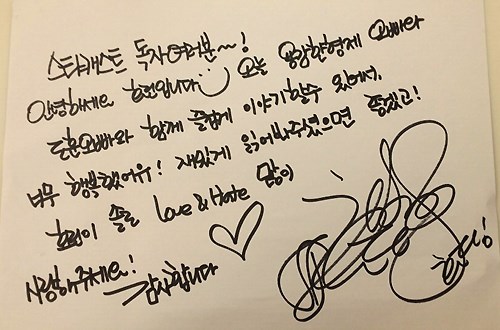 스타캐스트 독자여러분~!
안녕하세요 효린입니다 오늘 용감한형제 오빠와
도훈오빠와 함께 즐겁게 이야기할수 있어서,
너무 행복했어유! 재밌게 읽어봐주셨으면 좋겠고!
효린이 솔로 Love & Hate 많이
사랑해주세요! 감사합니다
효린!